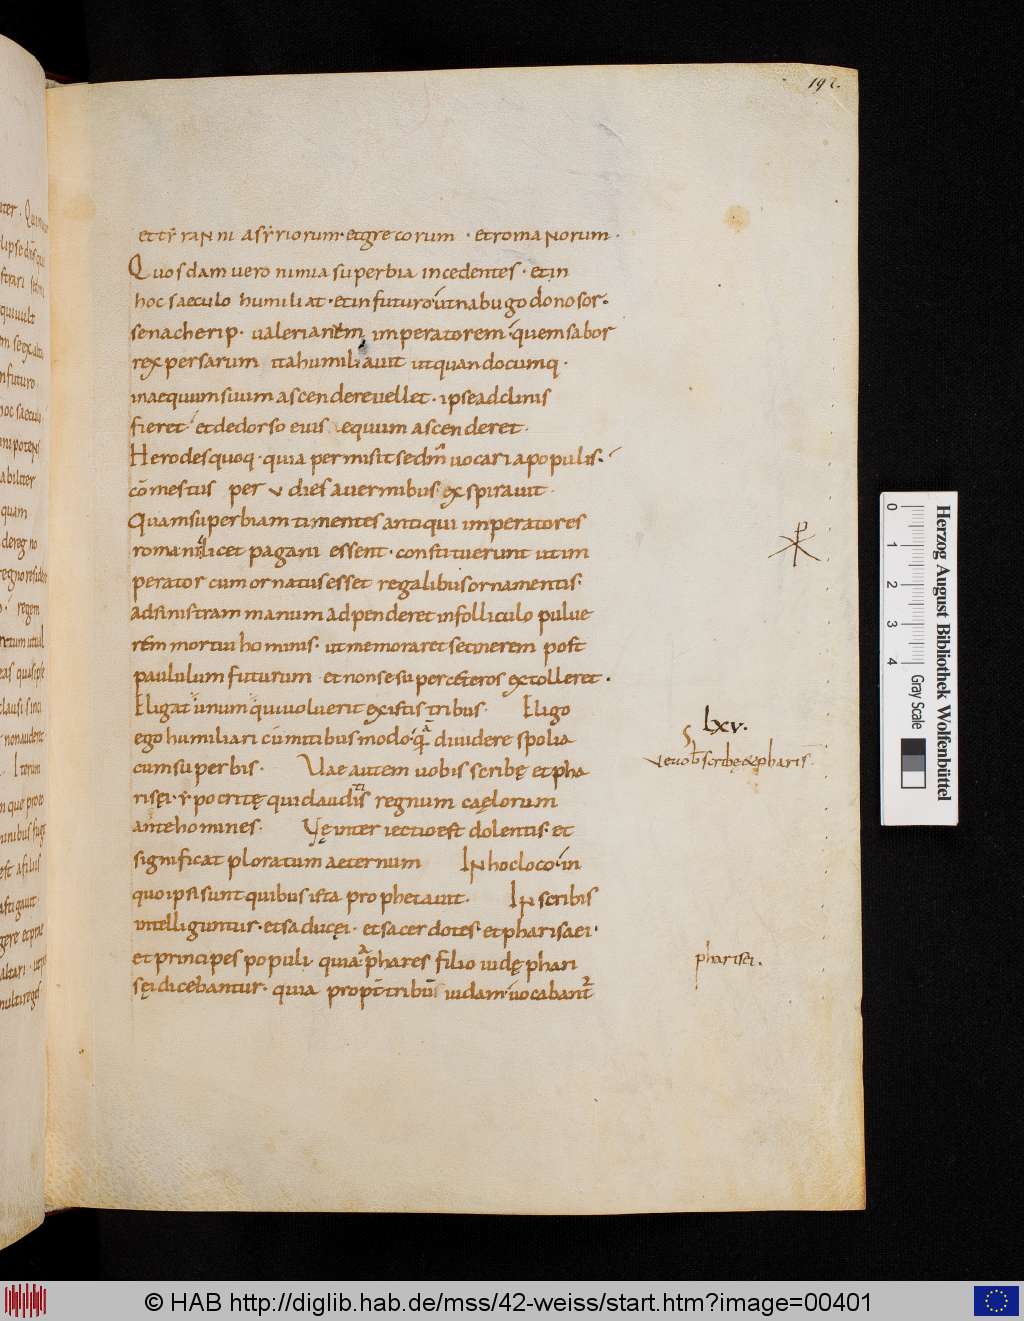 192.
et tẏranni asẏriorum· et grecorum · et romanorum·
Quosdam uero nimia superbia incedentes· et in
hoc saeculo humiliat· et in futuro ut nabugodonosor·
senacherip· ualerianem imperatorem quem sabor
rex persarum ita humiliauit ut quandocumq·
in aequum suum ascendere uellet· ipse adclinis
fieret et de dorso euis equum ascenderet·
Herodes quoq· quia permisit se dm̄ uocari a populis·
cōmestus per v dies a uermibus expirauit·
Quam superbiam timentes antiqui imperatores
romani licet pagani essent· constituerunt ut im
perator cum ornatus esset regalibus ornamentis·
ad sinistram manum adpenderet in folliculo pulue
rem mortui hominis· ut memoraret se cinerem post
paululum futurum et non se super cęteros extolleret·
Eligat unum qui uoluerit ex istis tribus· Eligo
ego humiliari cū mitibus modo· q̄ diuidere spolia
cum superbis· Uae autem uobis scribę et pha
risęi ẏpocritę qui clauditis regnum caęlorum
ante homines· Vę interiectio est dolentis· et
significat ploratum aeternum In hoc loco in
quo ipsi sunt quibus ista prophetauit· In scribis
intelliguntur· et saducęi· et sacerdotes· et pharisaei·
et principes populi· quia a phares filio iudę phari
sęi dicebantur· quia propt̄ tribū iudam uocabant᷑
lxv.
Ve uob scribę & pharis
pharisei.
0 1 2 3 4
Gray Scale
Herzog August Bibliothek Wolfenbüttel
© HAB http://diglib.hab.de/mss/42-weiss/start.htm?image=00401